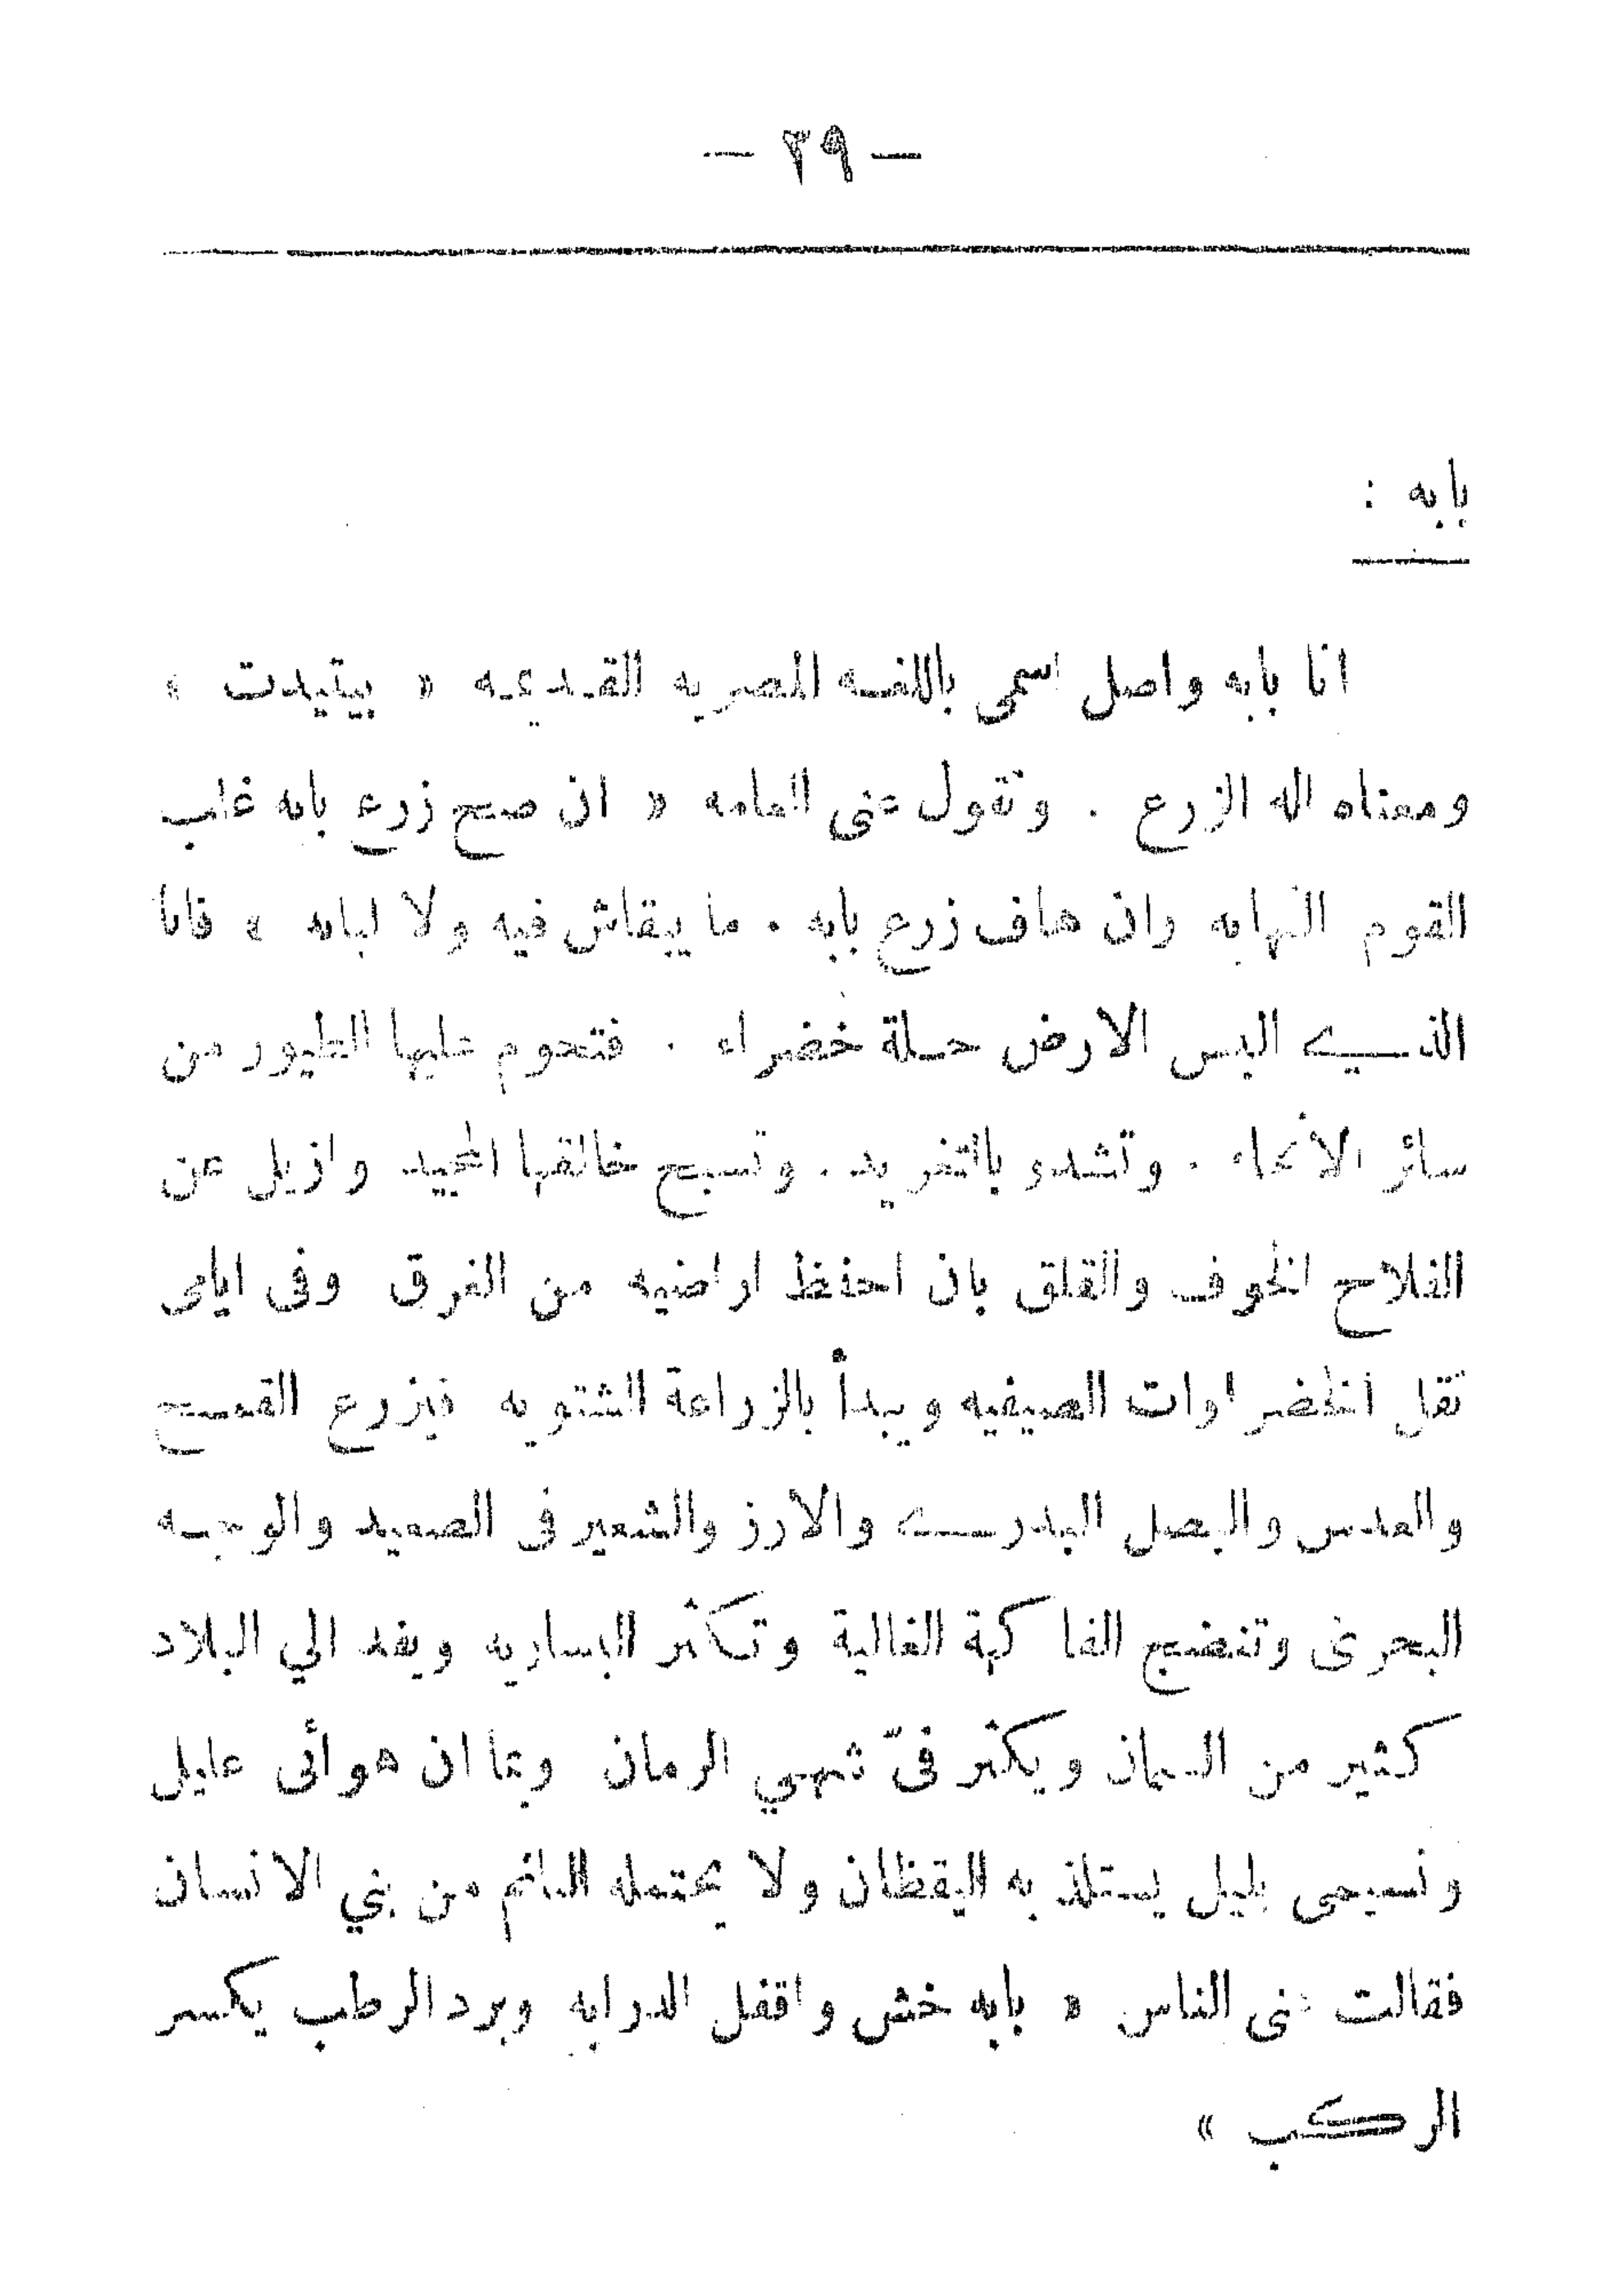 — ٣٩ —
بابه :
انا بابه واصل اسمى باللغه المصريه القديمه « بيتيدت »
ومعناه اله الزرع . وتقول عنى العامه « ان صح زرع بابه غلب
القوم النهابه وان هاف زرع بابه . ما يبقاش فيه ولا لبابه » فانا
الذي البس الارض حلة خضراء . فتحوم عليها الطيور من
سائر الانحاء . وتشدو بالتغريد . وتسبح خالقها المجيد وازيل عن
الفلاح الخوف والقلق بان احفظ اراضيه من الغرق وفى ايامى
تقل الخضراوات الصيفيه ويبدأ بالزراعة الشتويه فيزرع القمح
والعدس والبصل البدرى والارز والشعير فى الصعيد والوجه
البحرى وتنضج الفاكهة الغالية وتكثر البساريه ويفد الي البلاد
كثير من السمان ويكثر فىّ شهي الرمان وبما ان هوائى عليل
ونسيمى بليل يستلذ به اليقظان ولا يحتمله النائم من بني الانسان
فقالت عنى الناس « بابه خش واقفل الدرابه وبرد الرطب يكسر
الركب »